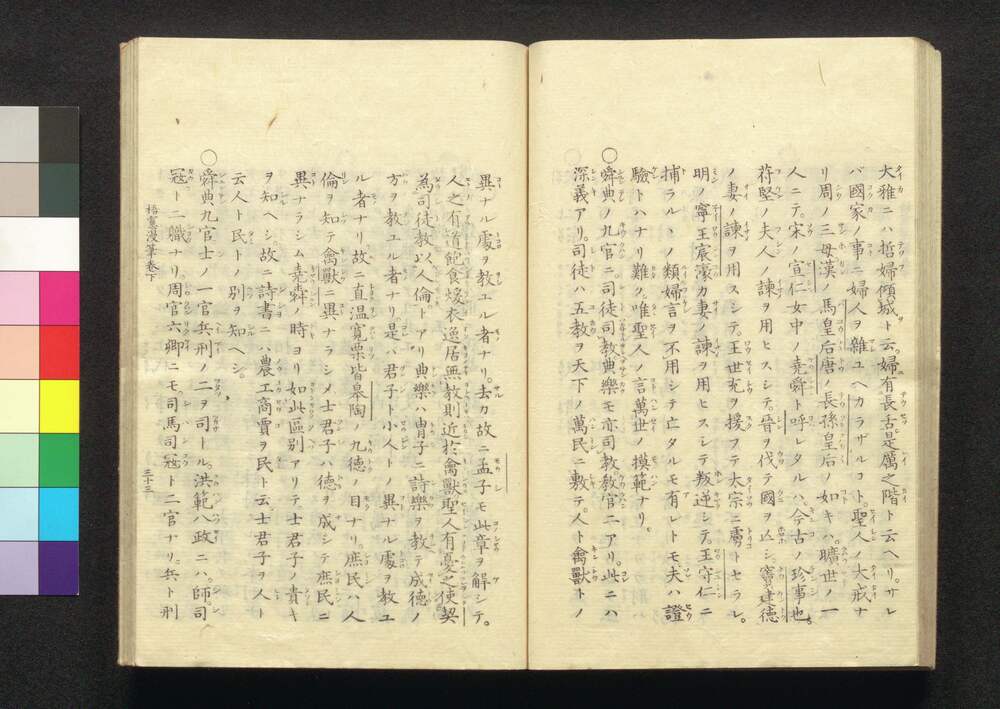 大雅ニハ哲婦傾城ト云。婦有長舌是厲之階ト云ヘリ。サレ
バ國家ノ事ニ婦人ヲ雜ユヘカラザルコト。聖人ノ大戒ナ
リ周ノ三母漢ノ馬皇后唐ノ長孫皇后ノ如キハ。曠世ノ一
人ニテ。宋ノ宣仁女中ノ堯舜ト呼レタルハ。今古ノ珍事也。
苻堅ノ夫人ノ諫ヲ用ヒスシテ。晉ヲ伐テ國ヲ亡シ。竇建德
ノ妻ノ諫ヲ用スシテ。王世充ヲ援フテ太宗ニ虜トセラレ。
明ノ寧王宸濠カ妻ノ諫ヲ用ヒスシテ叛逆シテ。王守仁ニ
捕ラルヽノ類婦言ヲ不用シテ亡タルモ有レトモ夫ハ證
驗トハナリ難シ唯聖人ノ言萬世ノ摸範ナリ。
○舜典ノ九官ニ。司徒司教典樂モ亦司教教官二アリ。此ニハ
深義アリ。司徒ハ五教ヲ天下ノ萬民ニ敷テ。人ト禽獸トノ
異ナル處ヲ教エル者ナリ。去カ故ニ孟子モ此章ヲ解シテ。
人之有道飽食煖衣逸居無教則近於禽獸聖人有憂之使契
為司徒教以人倫トアリ典樂ハ冑子ニ詩樂ヲ教テ成德ノ
方ヲ教エル者ナリ是バ君子ト小人トノ異ナル處ヲ教エ
ル者ナリ故ニ直温寛栗皆皐陶ノ九德ノ目ナリ。庶民ハ人
倫ヲ知テ禽獸ニ異ナラシメ士君子ハ德ヲ成シテ庶民ニ
異ナラシム堯舜ノ時ヨリ如此區別アリテ士君子ノ貴キ
ヲ知ヘシ。故ニ詩書ニハ農工商賈ヲ民ト云。士君子ヲ人ト
云人ト民トノ別ヲ知ヘシ。
○舜典九官士ノ一官兵刑ノ二ヲ司トル。洪範八政ニハ。師司
冦ト二職ナリ。周官六卿ニモ司馬司冦ト二官ナリ。兵ト刑
梧窻漫筆卷下
三十三